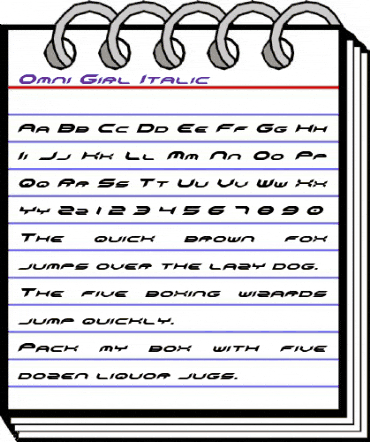 Omni Girl Italic
Aa Bb Cc Dd Ee Ff Gg Hh
Ii Jj Kk Ll Mm Nn Oo Pp
Qq Rr Ss Tt Uu Vv Ww Xx
Yy Zz 1 2 3 4 5 6 7 8 9 0
The quick brown fox
jumps over the lazy dog.
The five boxing wizards
jump quickly.
Pack my box with five
dozen liquor jugs.